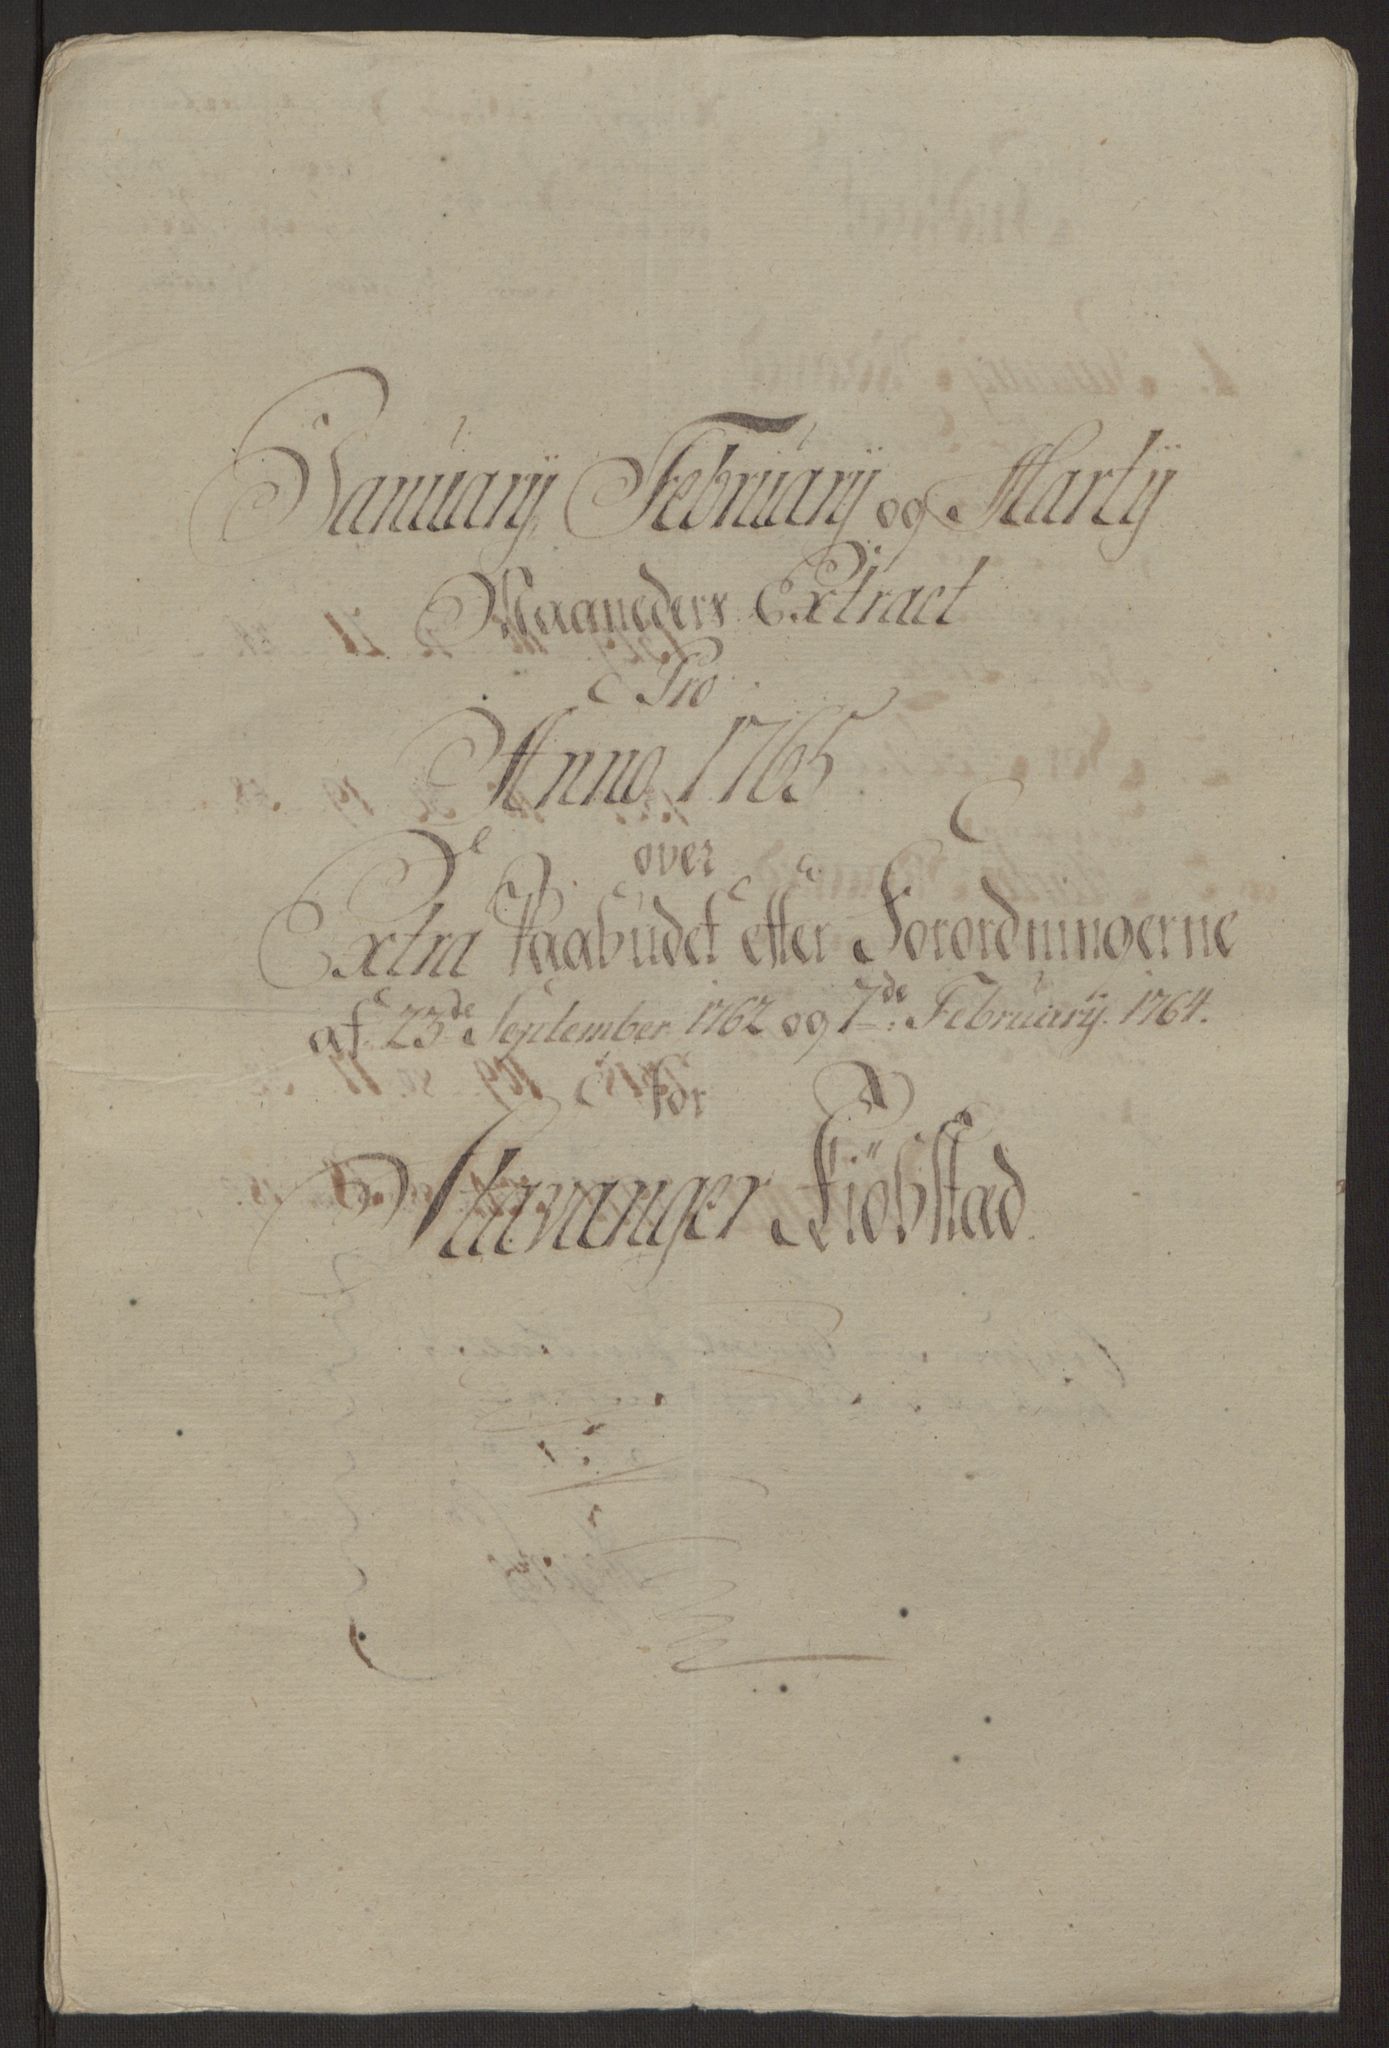 Januarij, Februarij og Martij
Maaneders Extract
Pro
Anno 1765
over
Extra Paabudet efter Forordningerne
af 23de September 1762 og 7de: Februarij 1764.
for
Stavanger Kiöbstad